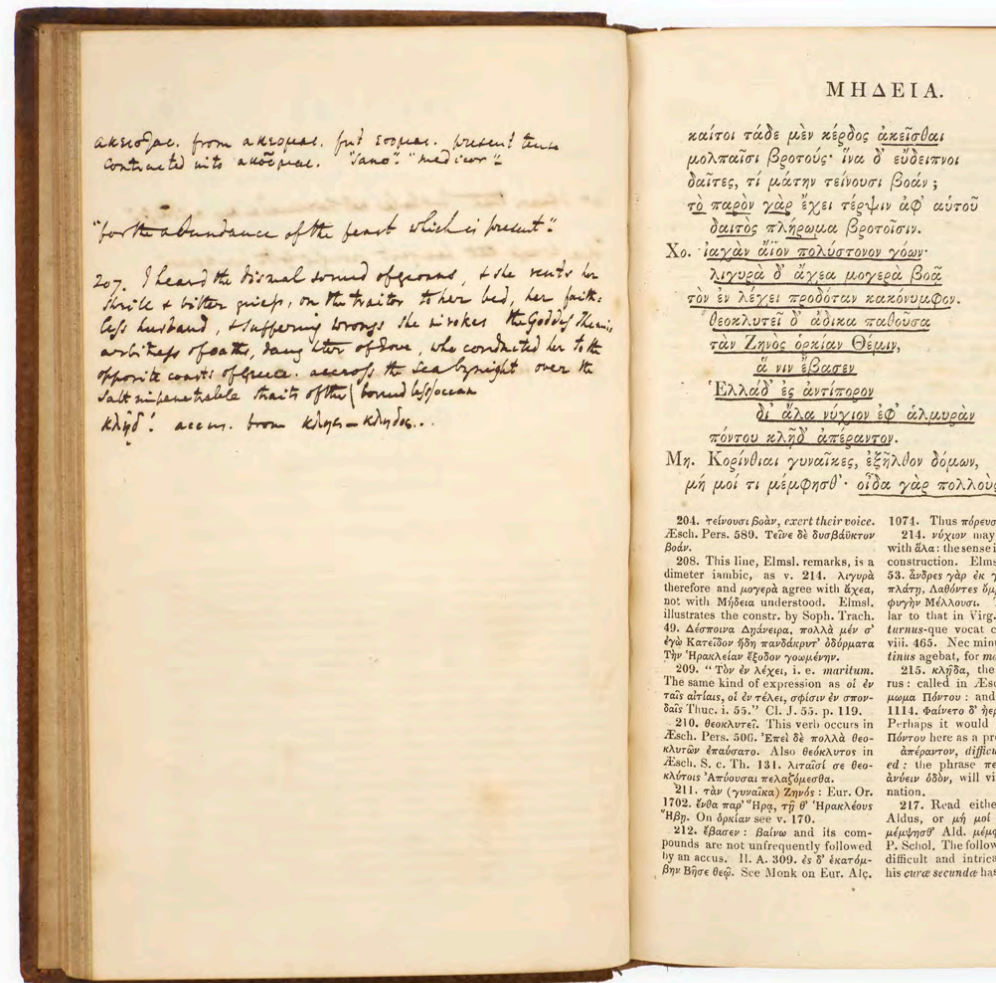 ακεισθαι. from ακεομαι. fut εσομαι. present tense
contracted into ακοῦμαι. "sano". "medicor".
"for the abundance of the feast which is present".
207. I heard the dismal sound of groans, & she vents her
shrill & bitter griefs, on the traitor to her bed, her faith:
less husband, & suffering wrongs she invokes the Goddess Themis
arbitress of oaths, daughter of Jove, who conducted her to the
opposite coasts of Greece. accross the sea by night over the
salt impenetrable straits of the boundless ocean
κλῃδ'. accus. from κληις – κληδος..
ΜΗΔΕΙΑ.
καίτοι τάδε μὲν κέρδος ἀκεῖσθαι
μολπαῖσι βροτούς· ἵνα δ' εὔδειπνοι
δαῖτες, τί μάτην τείνουσι βοάν;
τὸ παρὸν γὰρ ἔχει τέρψιν ἀφ' αὑτοῦ
δαιτὸς πλήρωμα βροτοῖσιν.
Χο. ἰαχὰν ἄϊον πολύστονον γόων·
λιγυρὰ δ' ἄχεα μογερὰ βοᾷ
τὸν ἐν λέχει προδόταν κακόνυμφον.
θεοκλυτεῖ δ' ἄδικα παθοῦσα
τὰν Ζηνὸς ὁρκίαν Θέμιν,
ἅ νιν ἔβασεν
Ἑλλάδ' ἐς ἀντίπορον
δι' ἅλα νύχιον ἐφ' ἁλμυρὰν
πόντου κλῇδ' ἀπέραντον.
Μη. Κορίνθιαι γυναῖκες, ἐξῆλθον δόμων,
μή μοί τι μέμφησθ'· οἶδα γὰρ πολλοὺς
204. τείνουσι βοὰν, exert their voice.
Æsch. Pers. 589. Τεῖνε δὲ δυσβάϋκτον
βοάν.
208. This line, Elmsl. remarks, is a
dimeter iambic, as v. 214. λιγυρὰ
therefore and μογερὰ agree with ἄχεα,
not with Μήδεια understood. Elmsl.
illustrates the constr. by Soph. Trach.
49. Δέσποινα Δηάνειρα, πολλὰ μέν σ'
ἐγὼ Κατεῖδον ἤδη πανδάκρυτ' ὀδύρματα
Τὴν Ἡρακλείαν ἔξοδον γοωμένην.
209. "Τὸν ἐν λέχει, i. e. maritum.
The same kind of expression as οἱ ἐν
ταῖς αἰτίαις, οἱ ἐν τέλει, σφίσιν ἐν σπον-
δαῖς Thuc. i. 55." Cl. J. 55. p. 119.
210. θεοκλυτεῖ. This verb occurs in
Æsch. Pers. 506. Ἐπεὶ δὲ πολλὰ θεο-
κλυτῶν ἐπαύσατο. Also θεόκλυτος in
Æsch. S. c. Th. 131. λιταῖσί σε θεο-
κλύτοις Ἀπύουσαι πελαζόμεσθα.
211. τὰν (γυναῖκα) Ζηνός: Eur. Or.
1702. ἔνθα παρ' Ἥρᾳ, τῇ θ' Ἡρακλέους
Ἥβῃ. On ὁρκίαν see v. 170.
212. ἔβασεν: βαίνω and its com-
pounds are not unfrequently followed
by an accus. Il. A. 309. ἐς δ' ἑκατόμ-
βην Βῆσε θεῷ. See Monk on Eur. Alc.
1074. Thus
214. νύχιον may
with ἅλα: the sense
construction.
53. ἄνδρες γὰρ ἐκ
πλάτῃ, Λαθόντες
φυγὴν Μέλλουσι.
lar to that in Virg.
turnus-que vocat
viii. 465. Nec
tinus agebat, for
215. κλῇδα, the
rus: called in
μωμα Πόντου: and
1114. Φαίνετο δ'
Perhaps it would
Πόντου here as a
ἀπέραντον,
ed: the phrase
ἀνύειν ὁδὸν, will
nation.
217. Read
Aldus, or μή μοί
μέμψησθ' Ald.
P. Schol. The
difficult and
his curæ secundæ